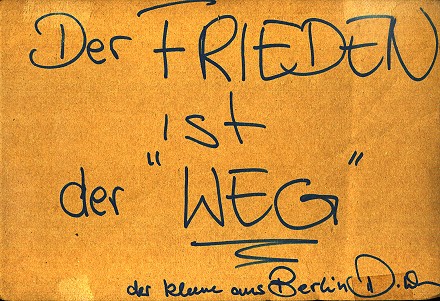 Der FRIEDEN
ist
der "WEG"
der kleine aus Berlin D.